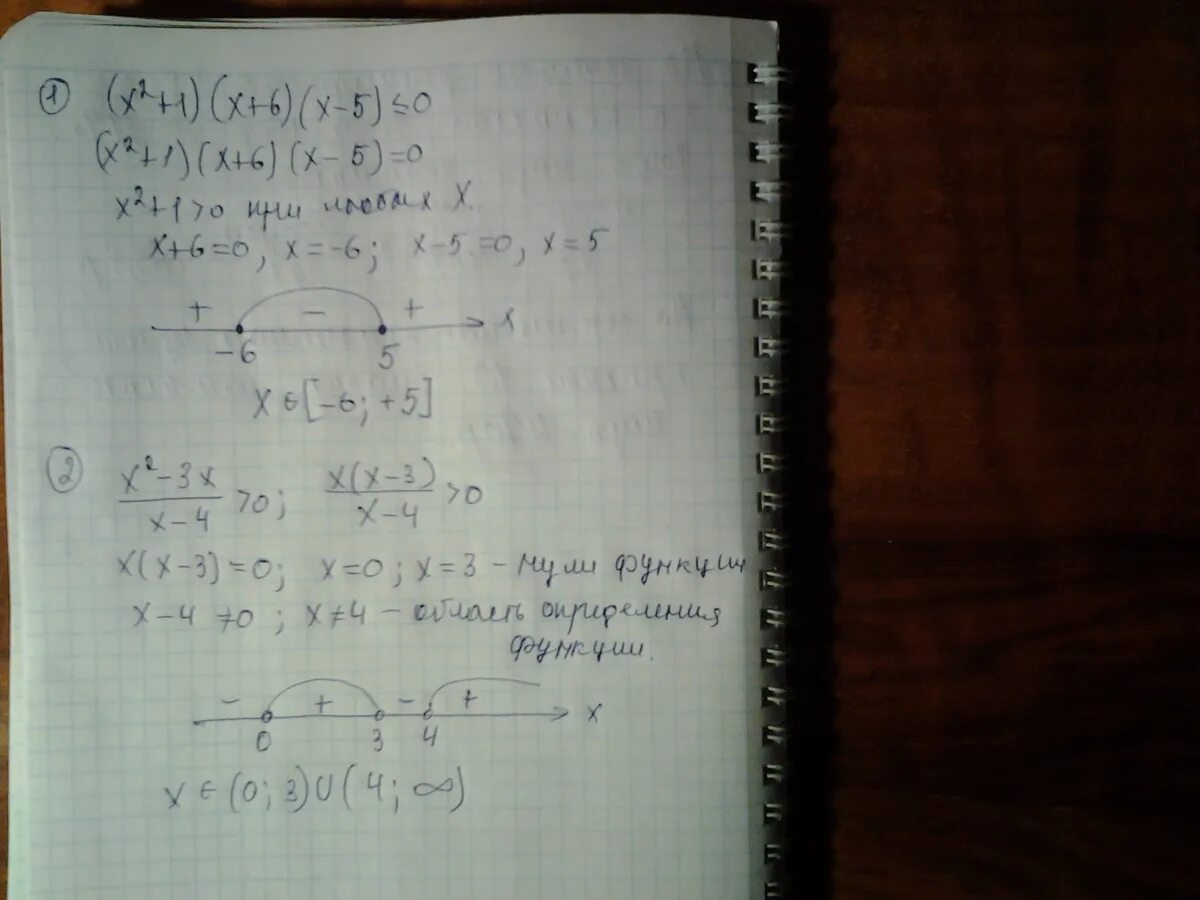 ① (x²+1)(x+6)(x-5)≤0
(x²+1)(x+6)(x-5)=0
x²+1>0 при любых X.
x+6=0, x=-6; x-5=0, x=5
+ - + x
-6 5
x∈[-6;+5]
② x²-3x/x-4 >0; x(x-3)/x-4 >0
x(x-3)=0; x=0; x=3 - нули функции
x-4≠0; x≠4 - область определения
функции.
- + - + x
0 3 4
x∈(0;3)∪(4;∞)